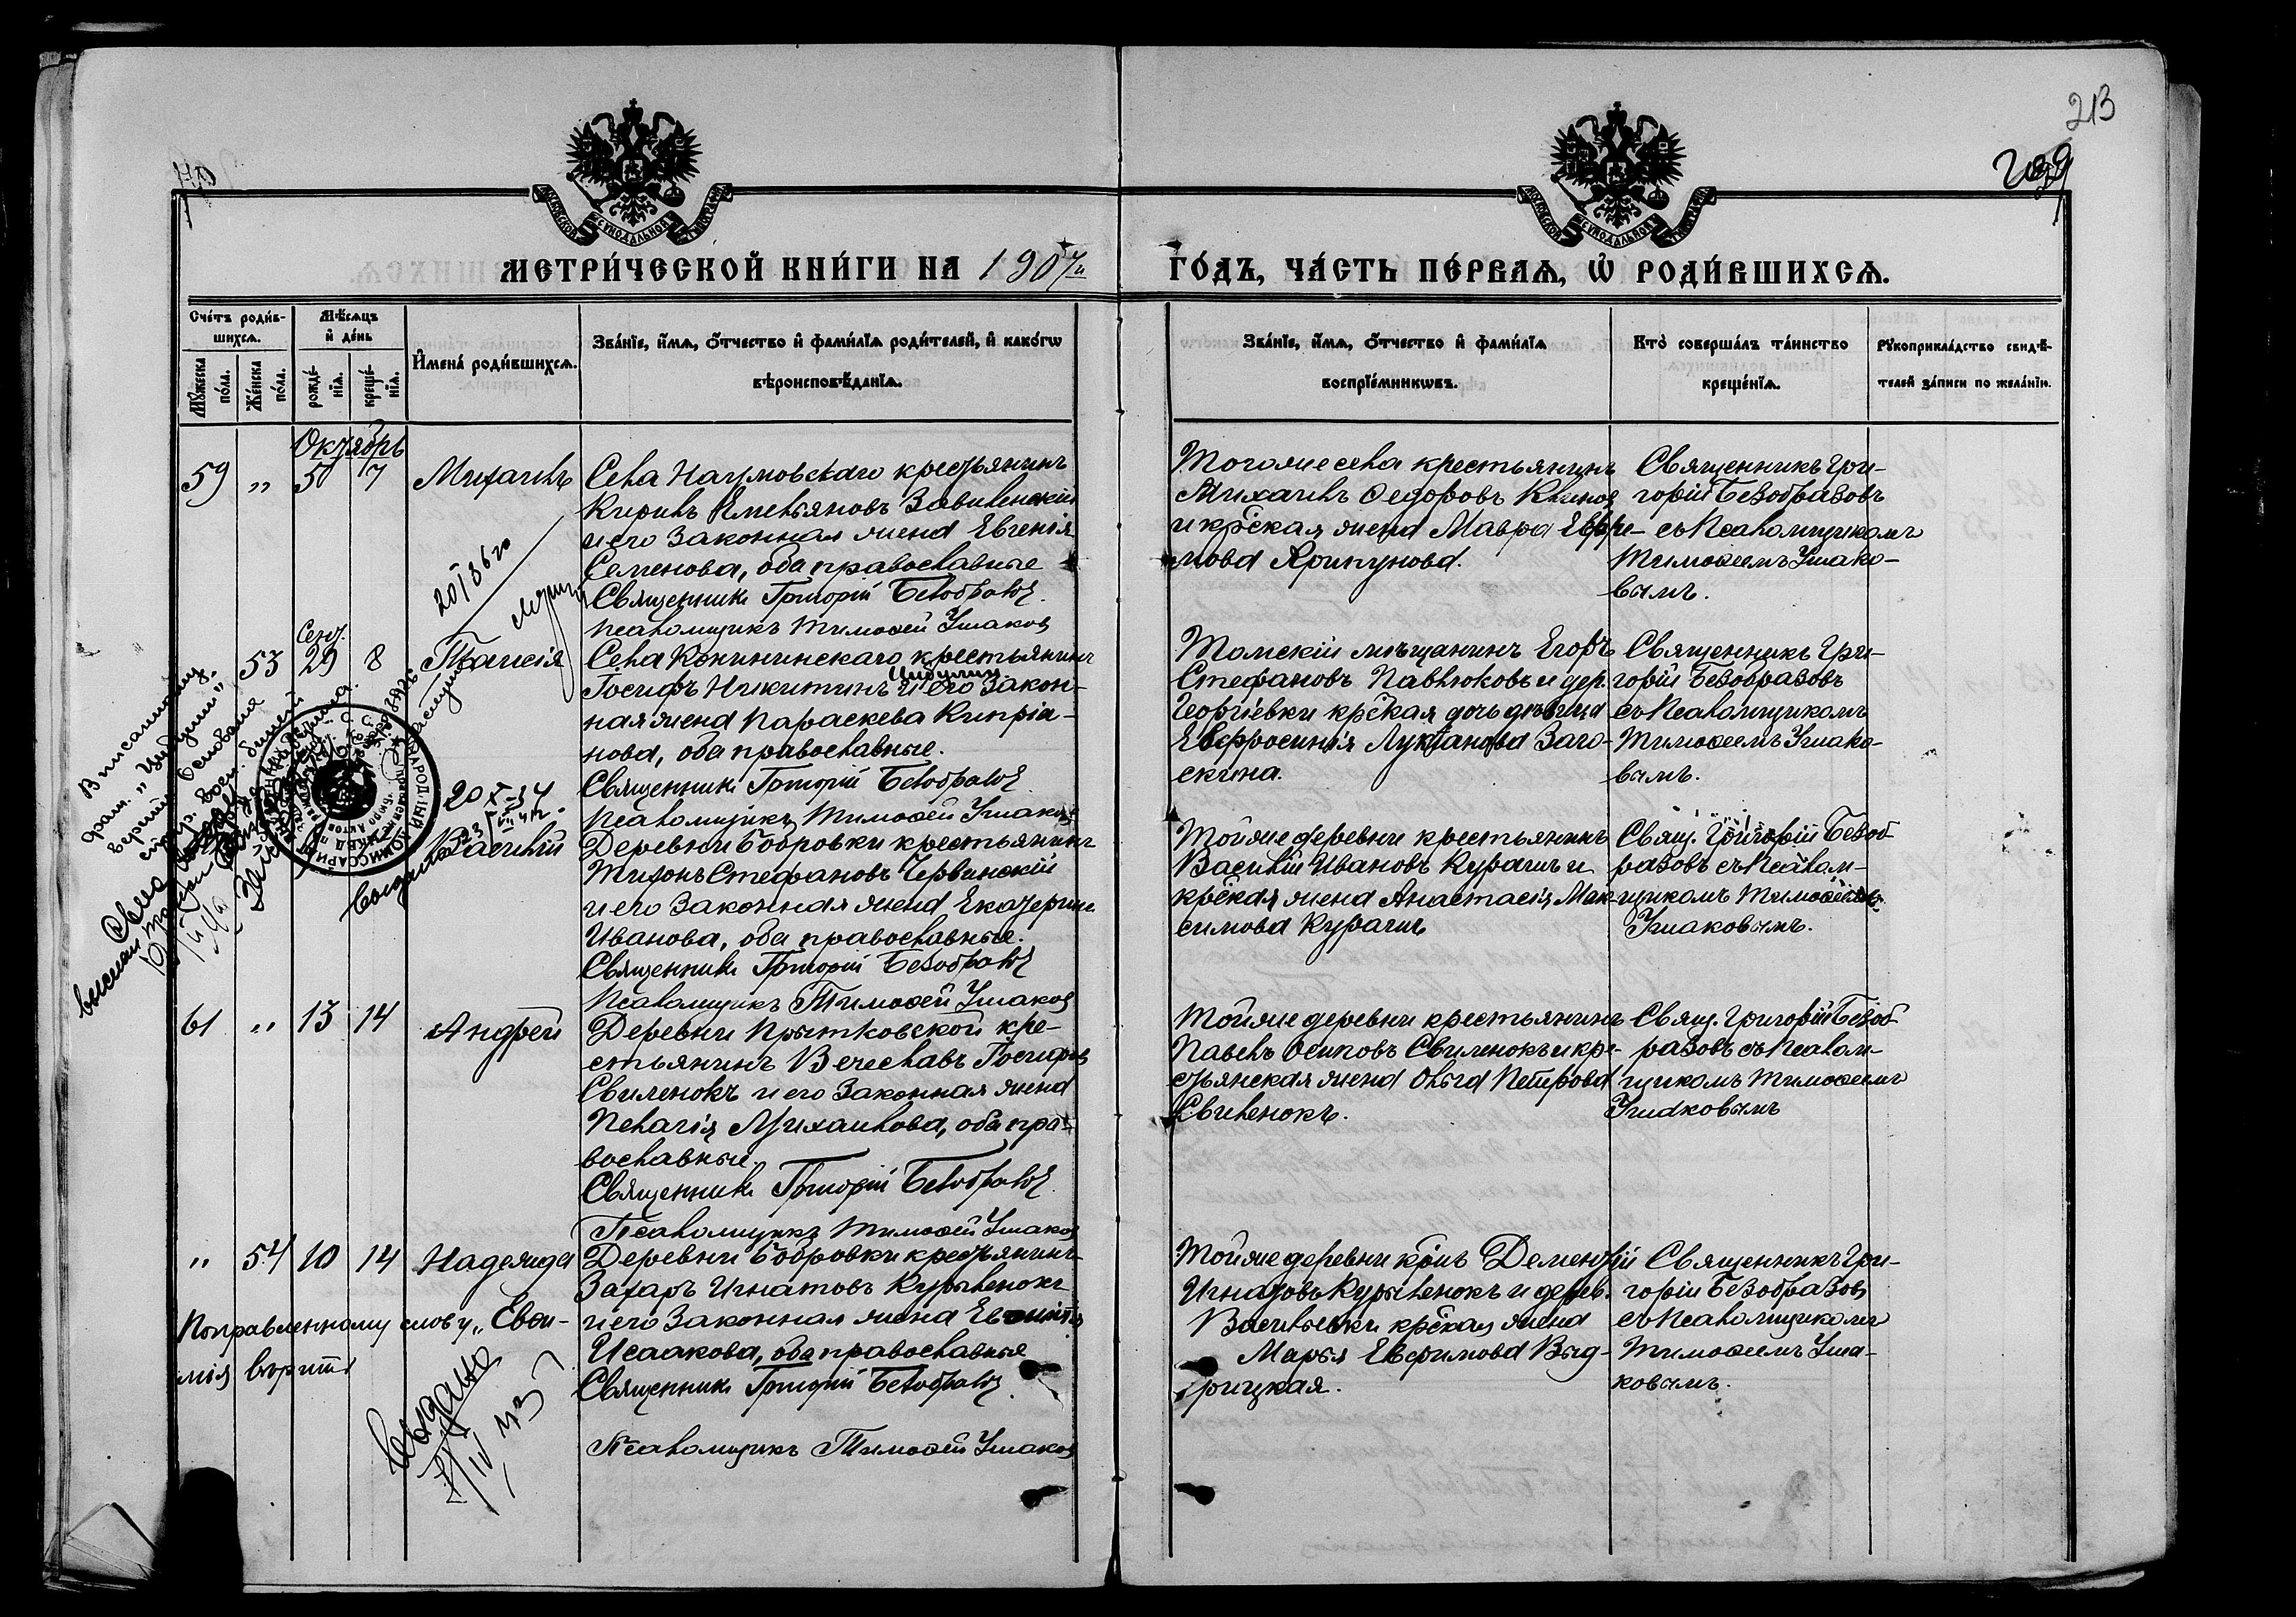 213
МЕТРИ́ЧЕСКОЙ КНИ́ГИ НА 1907й
ГО́ДЪ, ЧА́СТЬ ПЕ́РВАѦ, Ѡ҆ РОДИ́ВШИХСѦ.
Сче́тъ роди́в-
шихсѧ.
Мѣ́сѧцъ
и҆ де́нь
Мꙋ́жеска
по́ла.
Же́нска
по́ла.
рожде́-
нїѧ.
креще́-
нїѧ.
И҆мена̀ роди́вшихсѧ.
Зва́нїе, и҆́мѧ, ѻ҆́тчество и҆ фами́лїѧ роди́телей, и҆ како́гѡ
вѣроисповѣ́данїѧ.
Зва́нїе, и҆́мѧ, ѻ҆́тчество и҆ фами́лїѧ
воспрїе́мникѡвъ.
Кто̀ соверша́лъ та́инство
креще́нїѧ.
Рꙋкоприкла́дство свидѣ́-
телей за́писи по жела́нїю.
Октябрь
59 " 5 7 Михаилъ
Села Наумовскаго крестьянинъ
Кирилъ Емельяновъ Завиленскій
и его законная жена Евгенія
Семенова, оба православные
Священникъ Григорій Безобразовъ
Псаломщикъ Тимоѳей Ушаковъ
Тогоже села крестьянинъ
Михаилъ Ѳедоровъ
и кр̃ская жена Мавра Ефре-
мова Хрипунова.
Священникъ Гри-
горій Безобразовъ
съ Псаломщикомъ
Тимоѳеемъ Ушако-
вымъ.
Сент.
" 53 29 8 Таисія
Села Конининскаго крестьянинъ
Іосифъ Никитинъ Цибулин и его закон-
ная жена Параскева Кипріа-
нова, оба православные.
Священникъ Григорій Безобразовъ
Псаломщикъ Тимоѳей Ушаковъ
Томскій мѣщанинъ Егоръ
Стефановъ Павлюковъ и дер.
Георгіевки кр̃ская дочь дѣвица
Евфросинія Лукіанова Заго-
скина.
Священникъ Гри-
горій Безобразовъ
съ Псаломщикомъ
Тимоѳеемъ Ушако-
вымъ.
Василій
Деревни Бобровки крестьянинъ
Тихонъ Стефановъ Червинскій
и его законная жена Екатерина
Иванова, оба православные.
Священникъ Григорій Безобразовъ
Псаломщикъ Тимоѳей Ушаковъ
Тойже деревни крестьянинъ
Василій Ивановъ Курашъ и
кр̃ская жена Анастасія Мак-
симова Курашъ
Свящ. Григорій Безоб-
разовъ съ Псалом-
щикомъ Тимоѳеемъ
Ушаковымъ.
61 " 13 14 Андрей
Деревни Прытковской кре-
стьянинъ Вечеславъ Іосифовъ
Свиленокъ и его законная жена
Пелагія Михаилова, оба пра-
вославные.
Священникъ Григорій Безобразовъ
Псаломщикъ Тимоѳей Ушаковъ
Тойже деревни крестьянинъ
Павелъ Осиповъ Свиленокъ и кре-
стьянская жена Ольга Петрова
Свиленокъ.
Свящ. Григорій Безоб-
разовъ съ Псалом-
щикомъ Тимоѳеемъ
Ушаковымъ
" 54 10 14 Надежда
Деревни Бобровки крестьянинъ
Захаръ Игнатовъ Курыленокъ
и его законная жена
Исаакова, оба православные
Священникъ Григорій Безобразовъ
Псаломщикъ Тимоѳей Ушаковъ
Тойже деревни кр̃нъ Дементій
Игнатовъ Курыленокъ и дерев.
Васильевки кр̃ская жена
Марья Ефримова Выд-
рицкая.
Священникъ Гри-
горій Безобразовъ
съ Псаломщикомъ
Тимоѳеемъ Уша-
ковымъ.
Поправленному слову „Евѳи-
мія вѣрить
Вписанному
фам. „Цибулин"
верить
Выдано
20 X-34